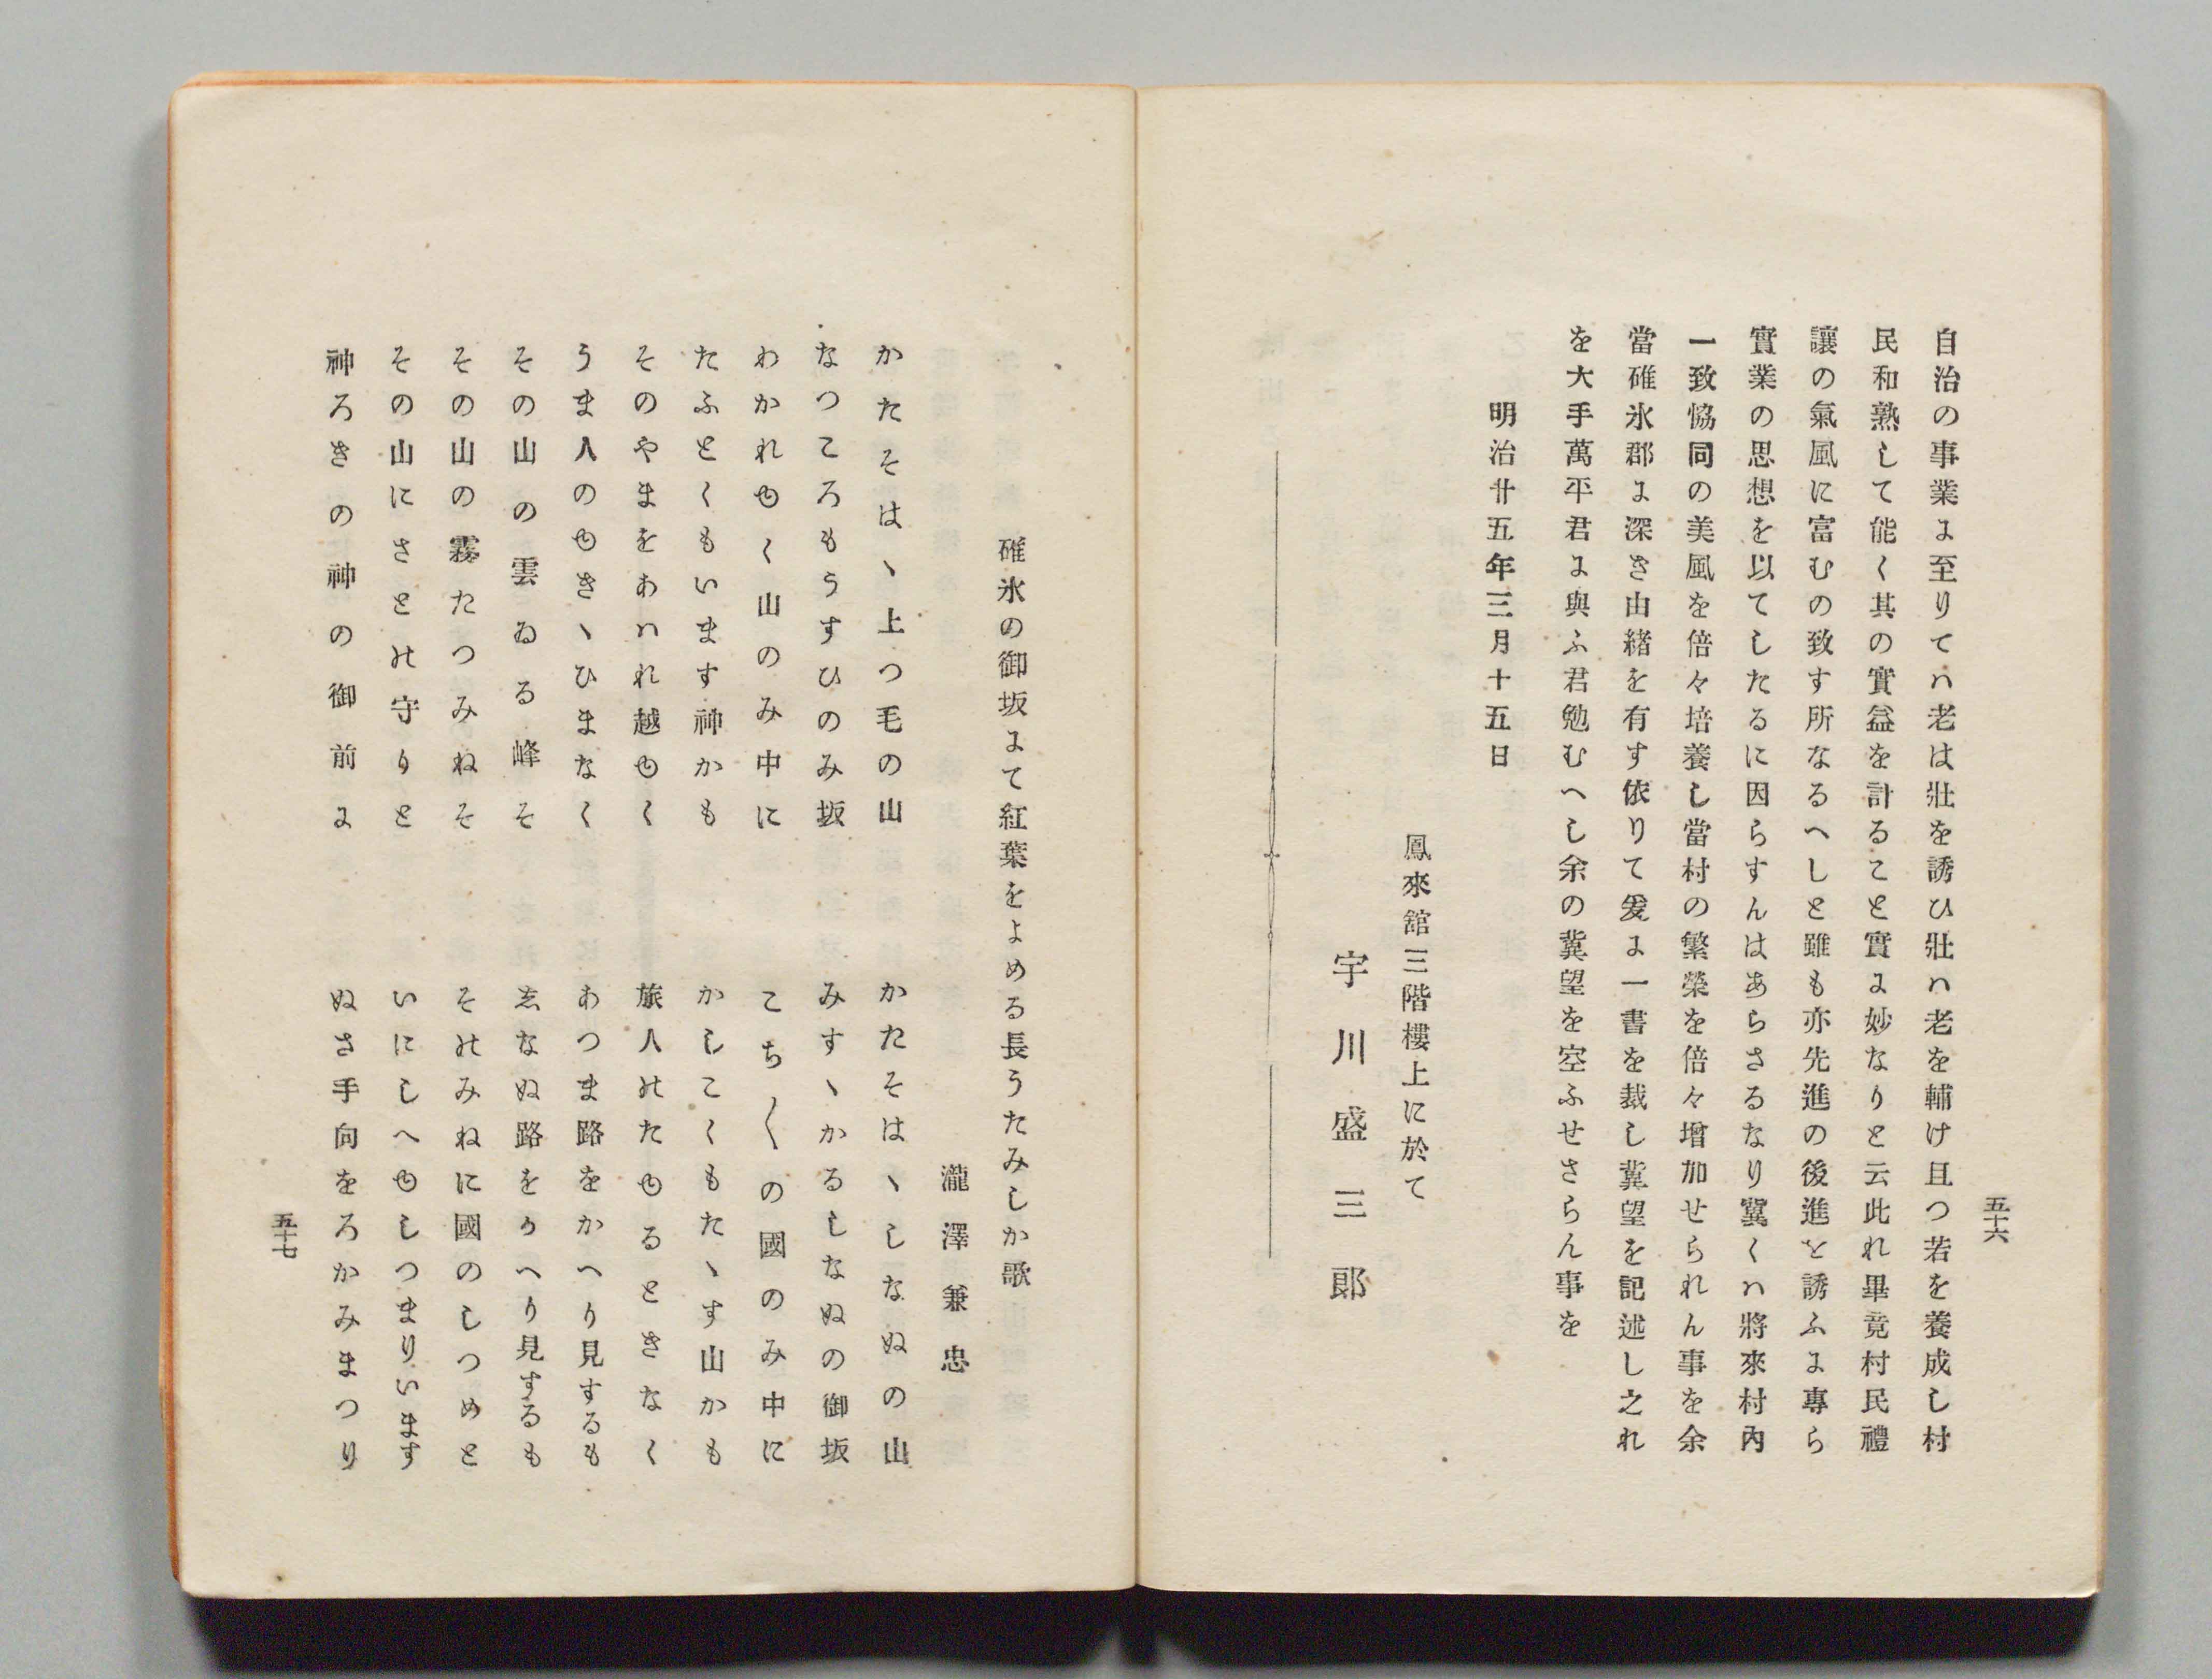 五十六
自治の事業ʓ至りてハ老は壯を誘ひ壯ハ老を輔け且つ若を養成し村
民和熟して能く其の實益を計ること實ʓ妙なりと云此れ畢竟村民禮
讓の氣風に富むの致す所なるへしと雖も亦先進の後進を誘ふʓ專ら
實業の思想を以てしたるに因らすんはあらさるなり冀くハ將來村內
一致恊同の美風を倍々培養し當村の繁榮を倍々增加せられん事を余
當碓氷郡ʓ深き由緖を有す依りて爰ʓ一書を裁し冀望を記述し之れ
を大手萬平君ʓ與ふ君勉むへし余の冀望を空ふせさらん事を
明治廿五年三月十五日
鳳來舘三階樓上に於て
宇川盛三郞
碓氷の御坂ʓて紅葉をよめる長うたみしか歌
瀧澤兼忠
かたそは丶上つ毛の山　かたそは丶しなぬの山
なつころもうすひのみ坂　みす丶かるしなぬの御坂
わかれゆく山のみ中に　こち〱の國のみ中に
たふとくもいます神かも　かしこくもた丶す山かも
そのやまをあハれ越ゆく　旅人のたゆるときなく
うま人のゆき丶ひまなく　あつま路をかへり見するも
その山の雲ゐる峰そ　志なぬ路をかへり見するも
その山の霧たつみねそ　そのみねに國のしつめと
その山にさとの守りと　いにしへゆしつまりいます
神ろきの神の御前ʓ　ぬさ手向をろかみまつり
五十七